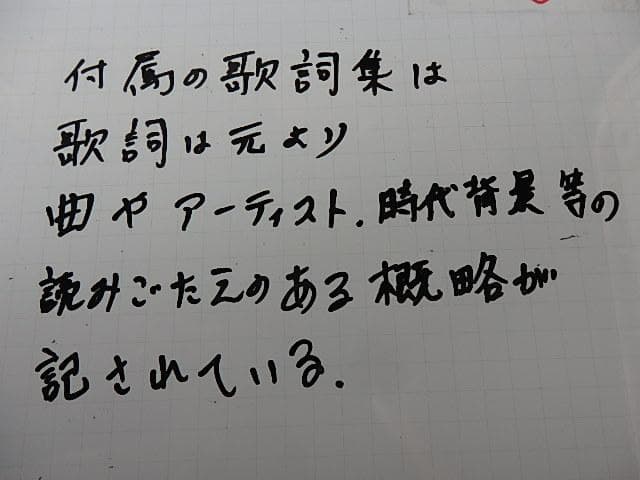 付属の歌詞集は
歌詞は元より
曲やアーティスト.時代背景等の
読みごたえのある概略が
記されている.